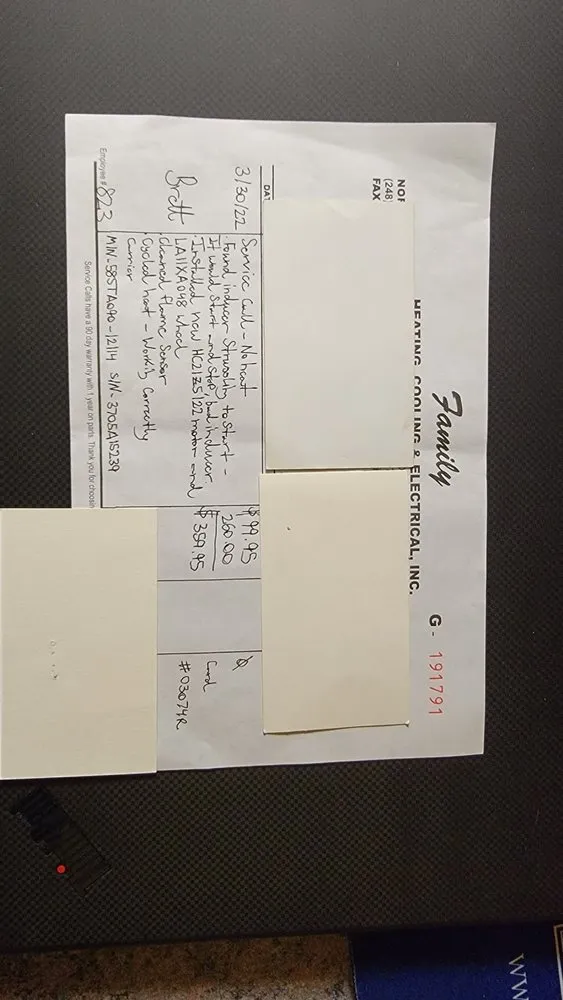 Family
HEATING, COOLING & ELECTRICAL, INC.
G - 191791
(248)
FAX
3/30/22 Service Call - No heat $99.95
Found inducer struggling to start - 260.00
It would start and stop, bad inducer. $359.95
Brett
Installed new HC21ZS122 motor and
LA11XA048 wheel
Cleaned flame sensor
Cycled heat - Working correctly
Carrier
M/N-58STA090-12114 S/N-3705A15239
Card
#03074R
Employee # 823
Service Calls have a 90 day warranty with 1 year on parts. Thank you for choosin
W